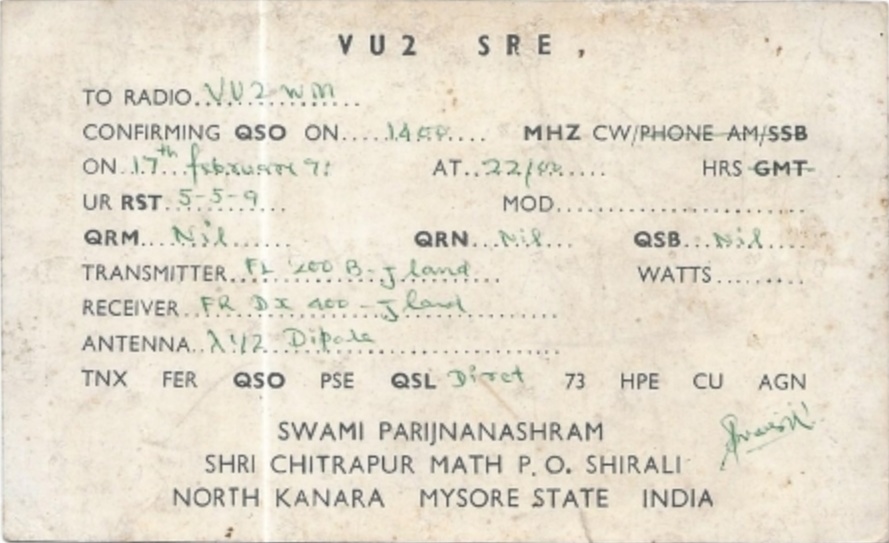 VU2 SRE,
TO RADIO VU2 WM
CONFIRMING QSO ON MHZ CW/PHONE AM/SSB
ON 17th february 71 AT 22/00 HRS GMT
UR RST 5-5-9 MOD
QRM Nil QRN Nil QSB Nil
TRANSMITTER FL 200 B- WATTS
RECEIVER FR DX 400 -
ANTENNA Dipole
TNX FER QSO PSE QSL Direct 73 HPE CU AGN
SWAMI PARIJNANASHRAM
SHRI CHITRAPUR MATH P. O. SHIRALI
NORTH KANARA MYSORE STATE INDIA